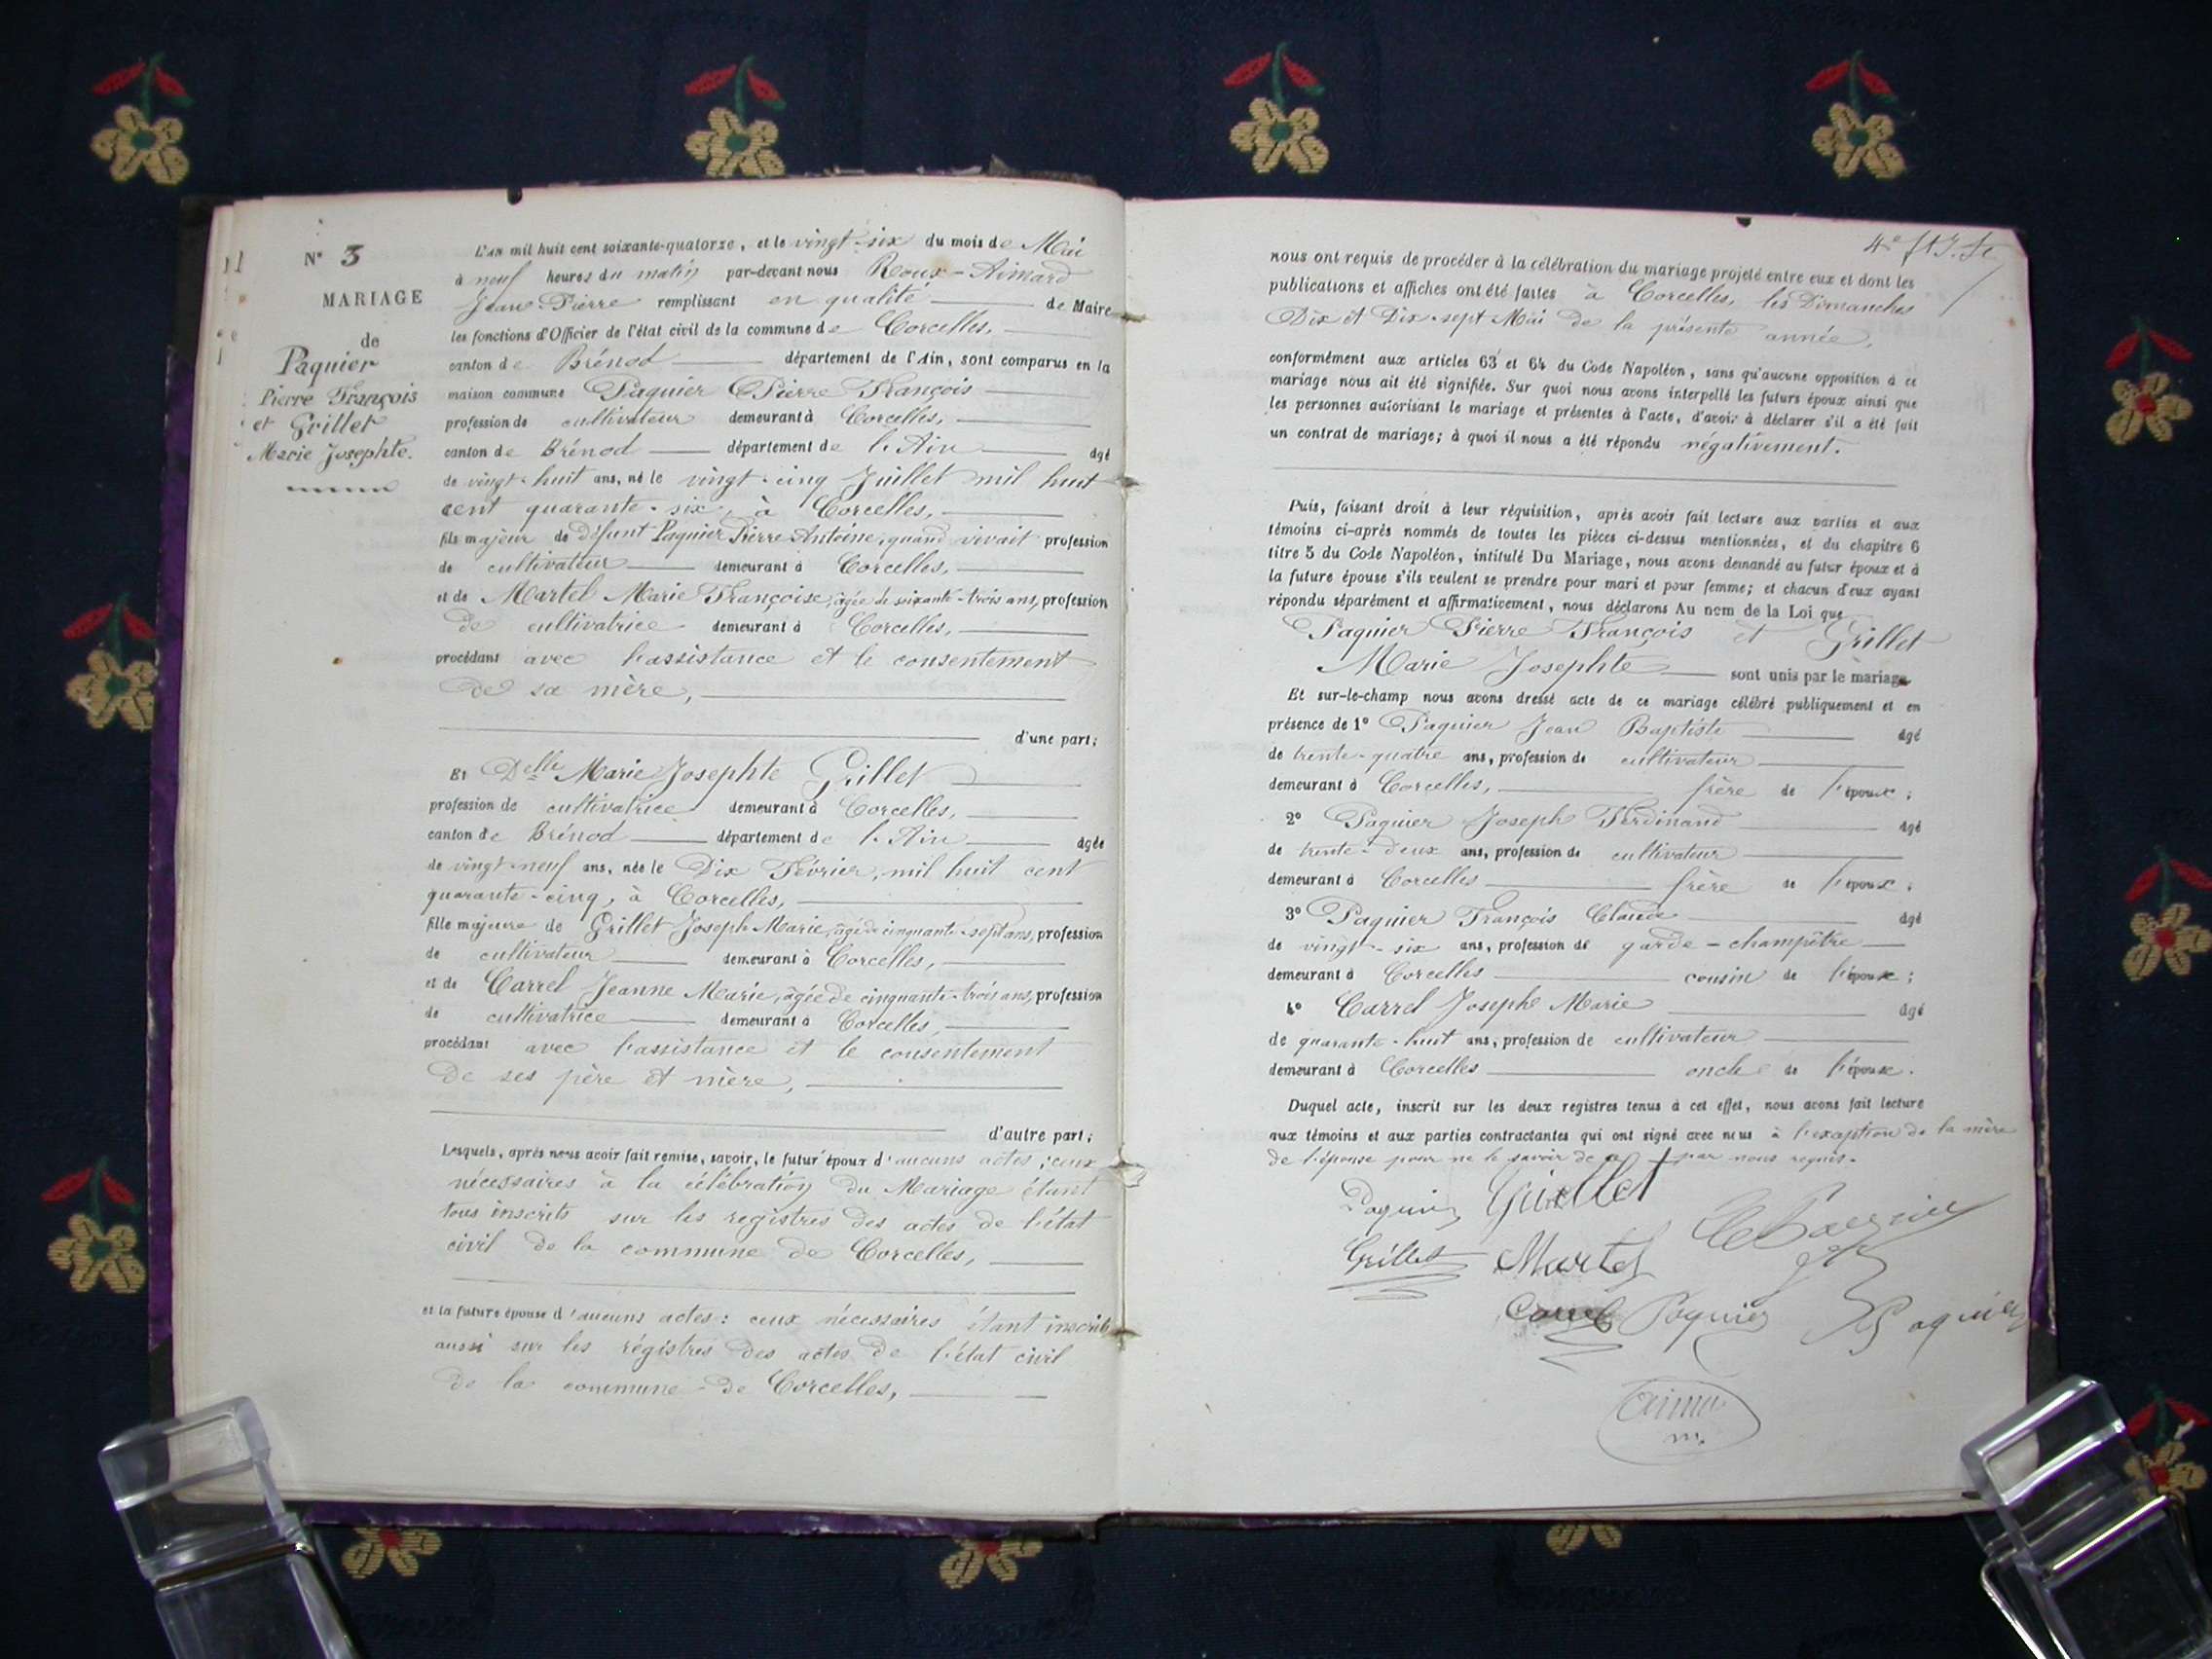 N° 3
MARIAGE
de
Paquier
Pierre François
et Grillet
Marie Josephte.
L'an mil huit cent soixante-quatorze, et le vingt-six du mois de Mai
à neuf heures du matin par-devant nous Roux-Aimard
Jean-Pierre remplissant en qualité de Maire
les fonctions d'Officier de l'état civil de la commune de Corcelles,
canton de Brénod département de l'Ain, sont comparus en la
maison commune Paquier Pierre François
profession de cultivateur demeurant à Corcelles,
canton de Brénod département de l'Ain âgé
de vingt-huit ans, né le vingt-cinq Juillet mil huit
cent quarante-six, à Corcelles,
fils majeur de défunt Paquier Pierre Antoine, quand vivait profession
de cultivateur demeurant à Corcelles,
et de Martel Marie Françoise, âgée de soixante-trois ans, profession
de cultivatrice demeurant à Corcelles,
procédant avec l'assistance et le consentement
de sa mère,
d'une part;
Et Delle Marie Josephte Grillet
profession de cultivatrice demeurant à Corcelles,
canton de Brénod département de l'Ain âgée
de vingt-neuf ans, née le Dix Février, mil huit cent
quarante-cinq, à Corcelles,
fille majeure de Grillet Joseph Marie, âgé de cinquante-sept ans, profession
de cultivateur demeurant à Corcelles,
et de Carrel Jeanne Marie, âgée de cinquante-trois ans, profession
de cultivatrice demeurant à Corcelles,
procédant avec l'assistance et le consentement
de ses père et mère,
d'autre part;
Lesquels, après nous avoir fait remise, savoir, le futur époux d'aucuns actes; ceux
nécessaires à la célébration du Mariage étant
tous inscrits sur les registres des actes de l'état
civil de la commune de Corcelles,
et la future épouse d'aucuns actes: ceux nécessaires étant inscrits
aussi sur les régistres des actes de l'état civil
de la commune de Corcelles,
4e
nous ont requis de procéder à la célébration du mariage projeté entre eux et dont les
publications et affiches ont été faites à Corcelles, les Dimanches
Dix et Dix-sept Mai de la présente année,
conformément aux articles 63 et 64 du Code Napoléon, sans qu'aucune opposition à ce
mariage nous ait été signifiée. Sur quoi nous avons interpellé les futurs époux ainsi que
les personnes autorisant le mariage et présentes à l'acte, d'avoir à déclarer s'il a été fait
un contrat de mariage; à quoi il nous a été répondu négativement.
Puis, faisant droit à leur réquisition, après avoir fait lecture aux parties et aux
témoins ci-après nommés de toutes les pièces ci-dessus mentionnées, et du chapitre 6
titre 5 du Code Napoléon, intitulé Du Mariage, nous avons demandé au futur époux et à
la future épouse s'ils veulent se prendre pour mari et pour femme; et chacun d'eux ayant
répondu séparément et affirmativement, nous déclarons Au nom de la Loi que
Paquier Pierre François et Grillet
Marie Josephte sont unis par le mariage
Et sur-le-champ nous avons dressé acte de ce mariage célébré publiquement et en
présence de 1° Paquier Jean Baptiste âgé
de trente-quatre ans, profession de cultivateur
demeurant à Corcelles, frère de l'époux;
2° Paquier Joseph Ferdinand âgé
de trente-deux ans, profession de cultivateur
demeurant à Corcelles frère de l'époux;
3° Paquier François Claude âgé
de vingt-six ans, profession de garde-champêtre
demeurant à Corcelles cousin de l'époux;
4° Carrel Joseph Marie âgé
de quarante-huit ans, profession de cultivateur
demeurant à Corcelles oncle de l'épouse.
Duquel acte, inscrit sur les deux registres tenus à cet effet, nous avons fait lecture
aux témoins et aux parties contractantes qui ont signé avec nous à l'exeption de la mère
de l'épouse pour ne le savoir de a par nous requis.
Paquier Grillet
Grillet Martel
Carrel Paquier Paquier